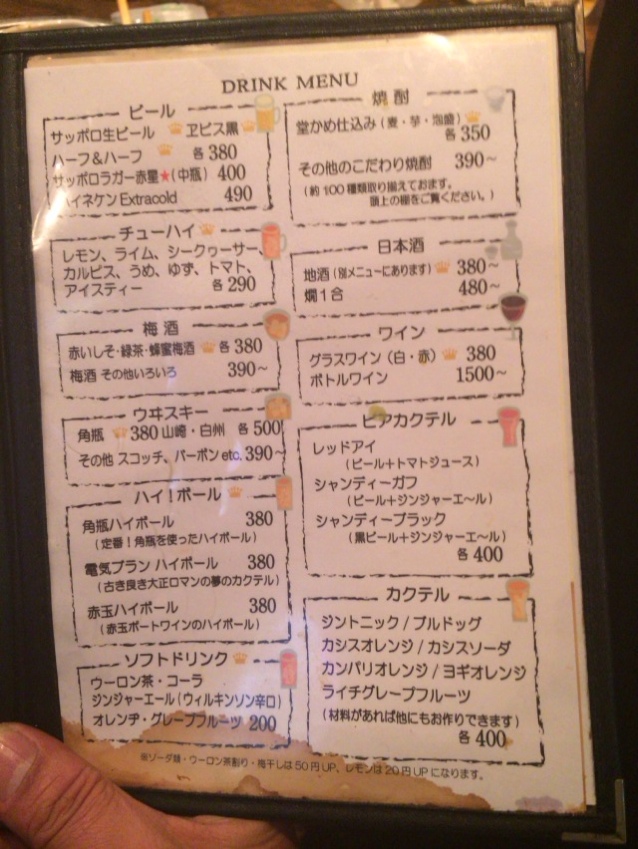 DRINK MENU
ビール
サッポロ生ビール ヱビス黒
ハーフ&ハーフ 各380
サッポロラガー赤星★(中瓶) 400
ハイネケンExtracold 490
チューハイ
レモン、ライム、シークヮーサー、
カルピス、うめ、ゆず、トマト、
アイスティー 各290
梅酒
赤いしそ・緑茶・蜂蜜梅酒 各380
梅酒 その他いろいろ 390~
ウヰスキー
角瓶 380 山崎・白州 各500
その他 スコッチ、バーボンetc. 390~
ハイ!ボール
角瓶ハイボール 380
(定番!角瓶を使ったハイボール)
電気ブラン ハイボール 380
(古き良き大正ロマンの夢のカクテル)
赤玉ハイボール 380
(赤玉ポートワインのハイボール)
ソフトドリンク
ウーロン茶・コーラ
ジンジャーエール(ウィルキンソン辛口)
オレンヂ・グレープフルーツ 200
焼酎
堂かめ仕込み(麦・芋・泡盛)
各350
その他のこだわり焼酎 390~
(約100種類取り揃えております。
頭上の棚をご覧ください。)
日本酒
地酒(別メニューにあります) 380~
燗1合 480~
ワイン
グラスワイン(白・赤) 380
ボトルワイン 1500~
ビアカクテル
レッドアイ
(ビール+トマトジュース)
シャンディーガフ
(ビール+ジンジャーエ~ル)
シャンディーブラック
(黒ビール+ジンジャーエ~ル)
各400
カクテル
ジントニック / ブルドッグ
カシスオレンジ / カシスソーダ
カンパリオレンジ / ヨギオレンジ
ライチグレープフルーツ
(材料があれば他にもお作りできます)
各400
※ソーダ類・ウーロン茶割り・梅干しは50円UP、レモンは20円UPになります。